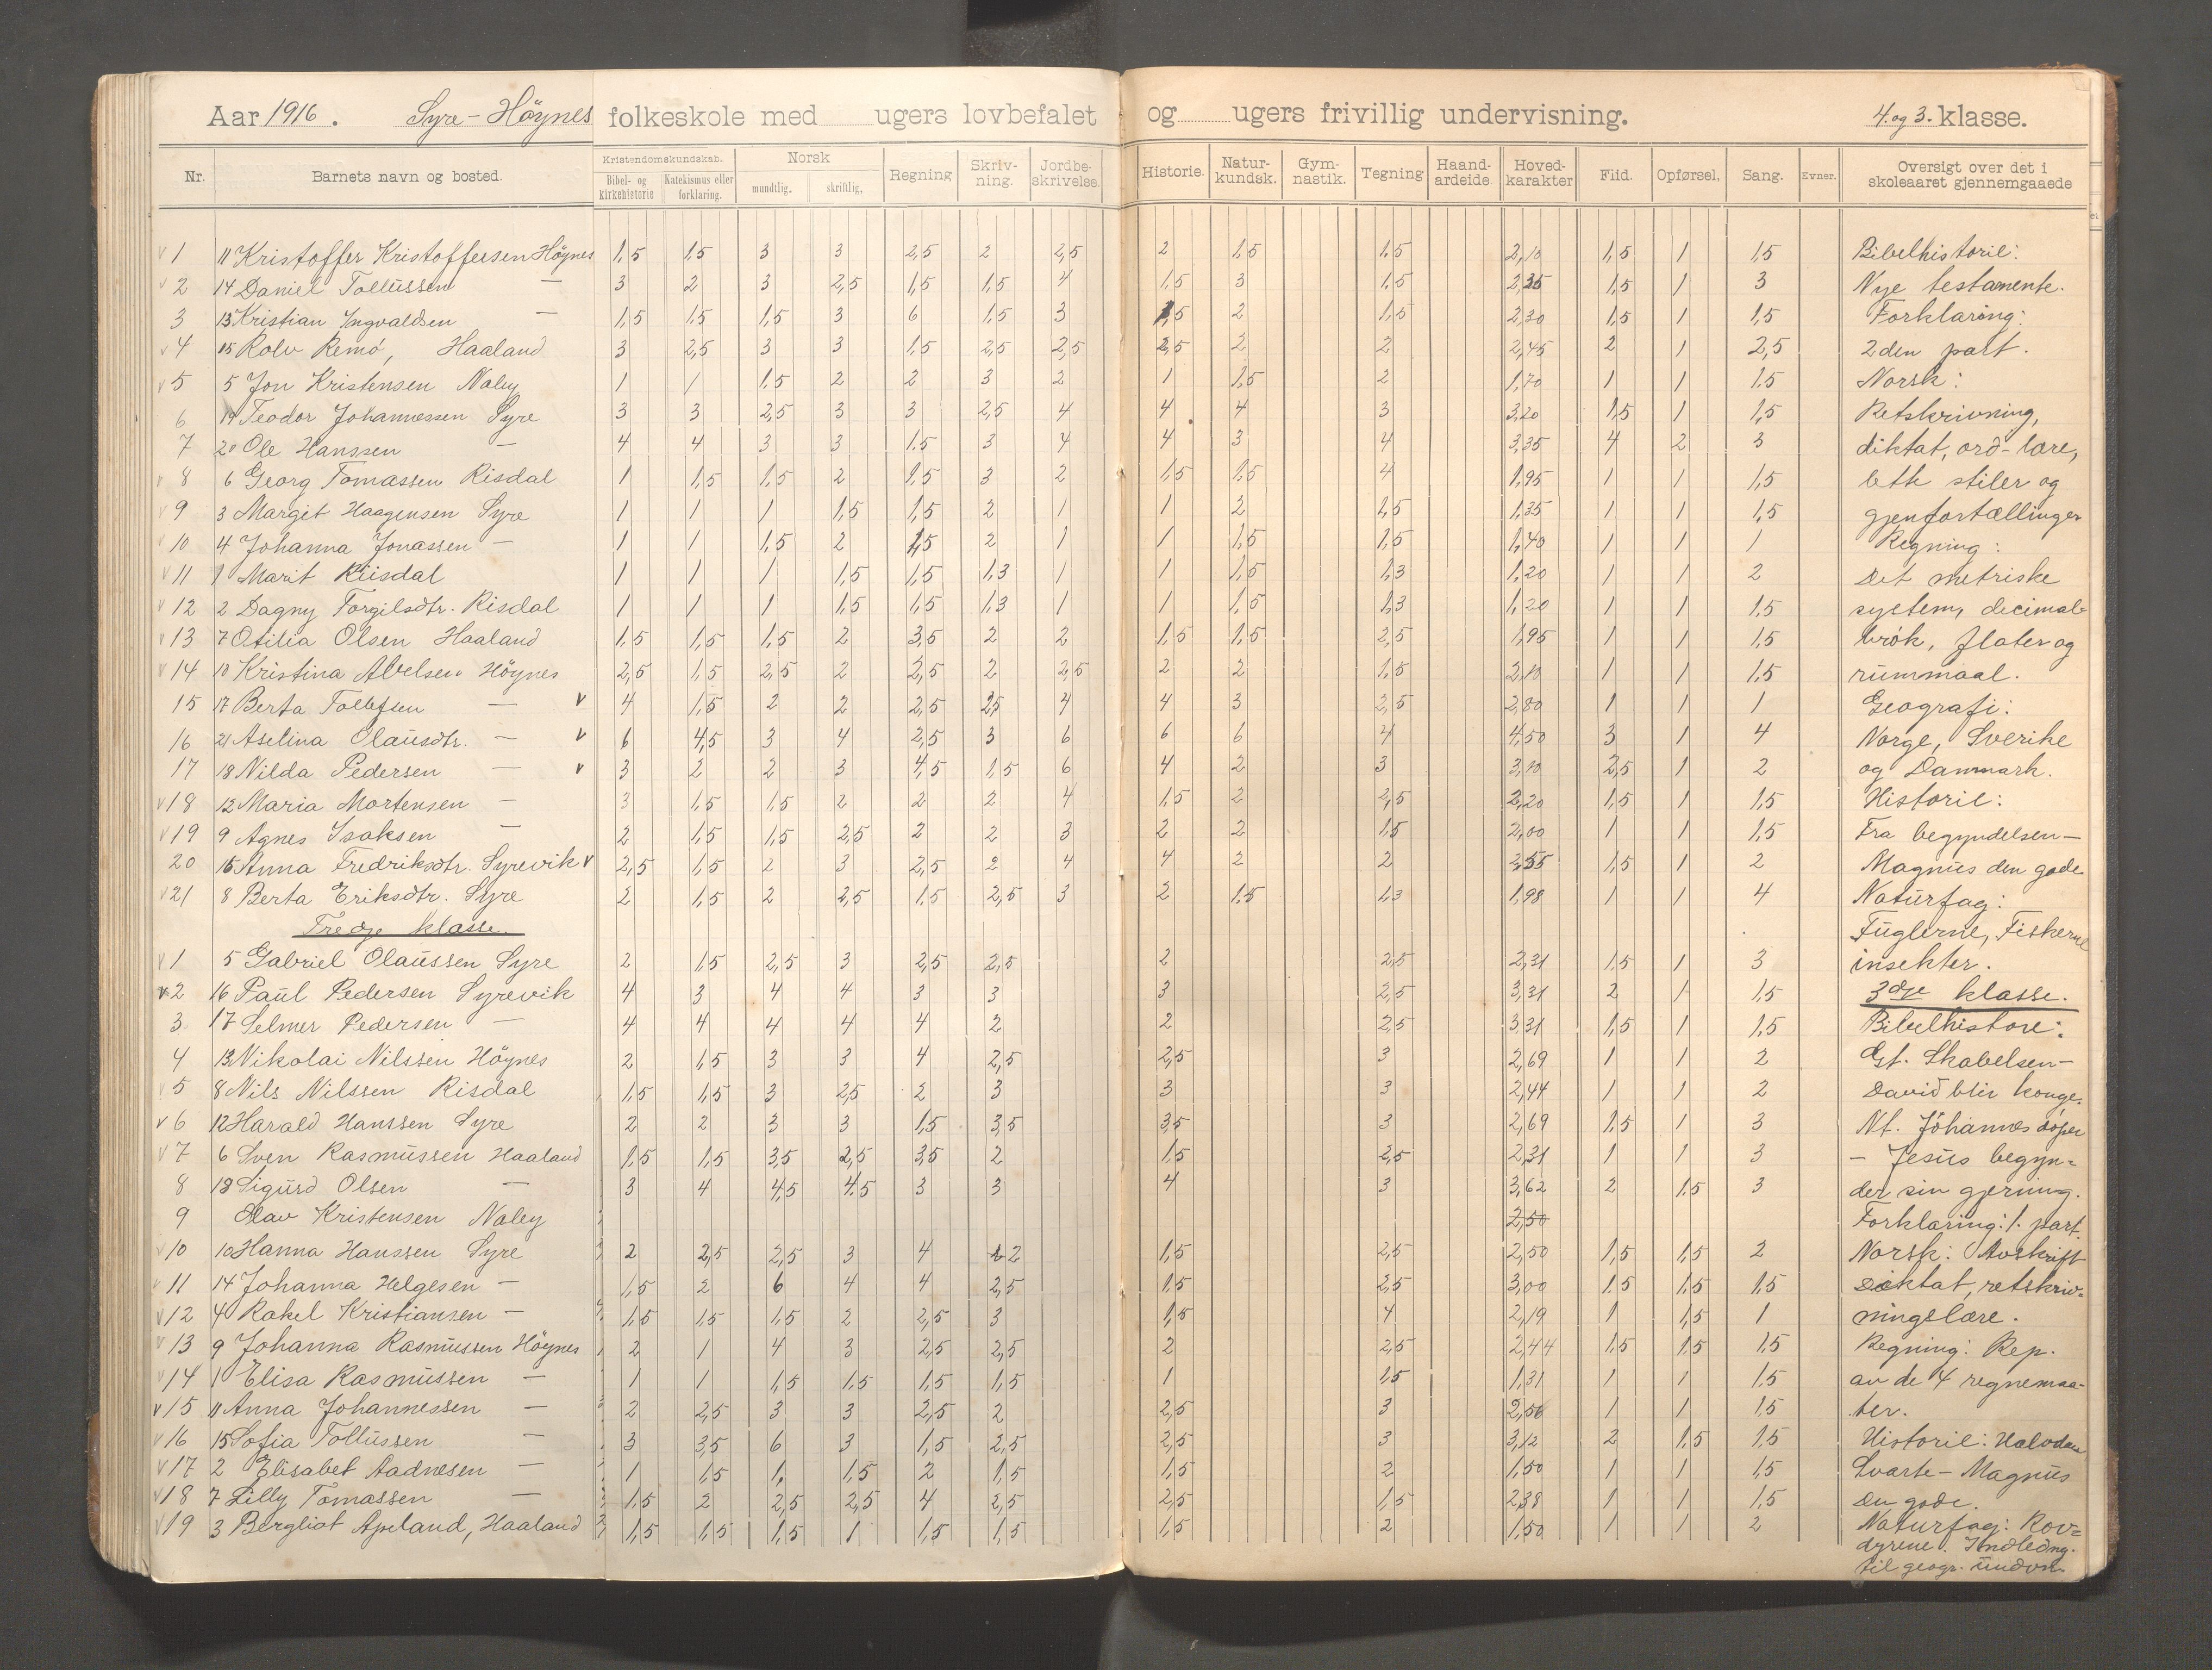 Aar 1916. Syre-Höynes folkeskole med ugers lovbefalet og ugers frivillig undervisning. 4. og 3. klasse.
Nr. Barnets navn og bosted. Kristendomskundskab. Bibel- og kirkehistorie Katekismus eller forklaring. Norsk mundtlig. skriftlig, Regning Skriv-ning. Jordbe-skrivelse. Historie. Natur-kundsk. Gym-nastik. Tegning Haand-arbeide. Hoved-karakter Flid. Opførsel, Sang. Evner. Oversigt over det i skoleaaret gjennemgaaede
1 11 Kristoffer Kristoffersen Höynes 1,5 1,5 3 3 2,5 2 2,5 2 1,5 1,5 2,10 1,5 1 1,5 Bibelhistorie:
2 14 Daniel Tollussen — 3 2 3 2,5 1,5 1,5 4 1,5 3 1,5 2,35 1,5 1 3 Nye testamente.
3 13 Kristian Ingvaldsen — 1,5 1,5 1,5 3 6 1,5 3 1,5 2 1,5 2,30 1,5 1 1,5 Forklaring:
4 15 Rolv Remö, Haaland 3 2,5 3 3 1,5 2,5 2,5 2,5 2 2 2,45 2 1 2,5 2den part.
5 5 Jon Kristensen Naley 1 1 1,5 2 2 3 2 1 1,5 2 1,70 1 1 1,5 Norsk:
6 19 Teodor Johannessen Syre 3 3 2,5 3 3 2,5 4 4 4 3 3,20 1,5 1 1,5 Retskrivning,
7 20 Ole Hanssen — 4 4 3 3 1,5 3 4 4 3 4 3,35 4 2 3 diktat, ord-lære,
8 6 Georg Tomassen Risdal 1 1,5 1,5 2 1,5 3 2 1,5 1,5 4 1,95 1 1 1,5 lette stiler og
9 3 Margit Haagensen Syre 1 1 1 1,5 1,5 2 1 1 2 1,5 1,35 1 1 1,5 gjenfortællinger
10 4 Johanna Jonassen — 1 1 1,5 2 1,5 2 1 1 1,5 1,5 1,40 1 1 1 Regning:
11 1 Marit Riisdal 1 1 1 1,5 1,5 1,3 1 1 1,5 1,3 1,20 1 1 2 Det metriske
12 2 Dagny Torgilsdtr. Risdal 1 1 1 1,5 1,5 1,3 1 1 1,5 1,3 1,20 1 1 1,5 system, decimal-
13 7 Otilia Olsen Haaland 1,5 1,5 1,5 2 3,5 2 2 1,5 1,5 2,5 1,95 1 1 1,5 brök, flater og
14 10 Kristina Abelsen Höynes 2,5 1,5 2,5 2 2,5 2 2,5 2 2 1,5 2,10 1 1 1,5 rummaal.
15 17 Berta Tollefsen — v 4 1,5 2 2 2,5 2,5 4 4 3 2,5 2,80 1 1 1 Geografi:
16 21 Aselina Olausdtr. — v 6 4,5 3 4 2,5 3 6 6 6 4 4,50 3 1 4 Norge, Sverike
17 18 Nilda Pedersen — v 3 2 2 3 4,5 1,5 6 4 2 3 3,10 2,5 1 2 og Danmark.
18 12 Maria Mortensen — 3 1,5 1,5 2 2 2 4 1,5 2 2,5 2,20 1,5 1 1,5 Historie:
19 9 Agnes Isaksen — 2 1,5 1,5 2,5 2 2 3 2 2 1,5 2,00 1 1 1,5 Fra begyndelsen —
20 16 Anna Fredriksdtr. Syrevik v 2,5 1,5 2 3 2,5 2 4 4 2 2 2,55 1,5 1 2 Magnus den gode
21 8 Berta Eriksdtr. Syre 2 1,5 2 2,5 1,5 2,5 3 2 1,5 1,3 1,98 1 1 4 Naturfag:
Tredje klasse. Fuglerne, Fiskerne
1 5 Gabriel Olaussen Syre 2 1,5 2,5 3 2,5 2,5 2 2,5 2,31 1,5 1 3 insekter.
2 16 Paul Pedersen Syrevik 4 3 4 4 3 3 3 2,5 3,31 2 1 1,5 3dje klasse.
3 17 Selmer Pedersen — 4 4 4 4 4 2 2 2,5 3,31 1,5 1 1,5 Bibelhistore:
4 13 Nikolai Nilssen Höynes 2 1,5 3 3 4 2,5 2,5 3 2,69 1 1 2 Gt. Skabelsen —
5 8 Nils Nilssen Risdal 1,5 1,5 3 2,5 2 3 3 3 2,44 1 1 2 David blir konge.
6 12 Harald Hanssen Syre 2 2 3 3 1,5 3,5 3,5 3 2,69 1,5 1 3 Nt. Johannes döper
7 6 Sven Rasmussen Haaland 1,5 1,5 3,5 2,5 3,5 2 1,5 2,5 2,31 1 1 3 — Jesus begyn=
8 18 Sigurd Olsen — 3 4 4,5 4,5 3 3 4 3 3,62 2 1,5 3 der sin gjerning.
9 Olav Kristensen Naley 2,50 Forklaring: 1. part.
10 10 Hanna Hanssen Syre 2 2,5 2,5 3 4 2 1,5 2,5 2,50 1,5 1,5 2 Norsk: Avskrift
11 14 Johanna Helgesen — 1,5 2 6 4 4 2,5 1,5 2,5 3,00 1,5 1,5 1,5 Diktat, retskriv=
12 4 Rakel Kristiansen — 1,5 1,5 1,5 2 2,5 3 1,5 4 2,19 1 1,5 1 ningslære.
13 9 Johanna Rasmussen Höynes 2 1 4 3 2,5 2,5 2 2,5 2,44 1,5 1,5 1,5 Regning: Rep.
14 1 Elisa Rasmussen — 1 1 1,5 1,5 1,5 1,5 1 1,5 1,31 1 1 1,5 av de 4 regnemaa-
15 11 Anna Johannessen — 2 2,5 3 3 2,5 2 2,5 3 2,56 1 1 1,5 ter.
16 15 Sofia Tollussen — 3 3,5 6 3 1,5 2,5 2,5 3 3,12 2 1,5 1,5 Historie: Halvdan
17 2 Elisabet Aadnesen — 1 1,5 1, 1,5 2 1,5 1,5 2 1,50 1 1 1,5 Svarte — Magnus
18 7 Lilly Tomassen — 1,5 2 2,5 2,5 4 2,5 2,5 1,5 2,38 1 1 1,5 den gode.
19 3 Bergliot Apeland, Haaland 1,5 1,5 1,5 1 1,5 1,5 1,5 2 1,50 1 1 2 Naturfag: Rov=
dyrene. Indledng.
til geogr. undvn.